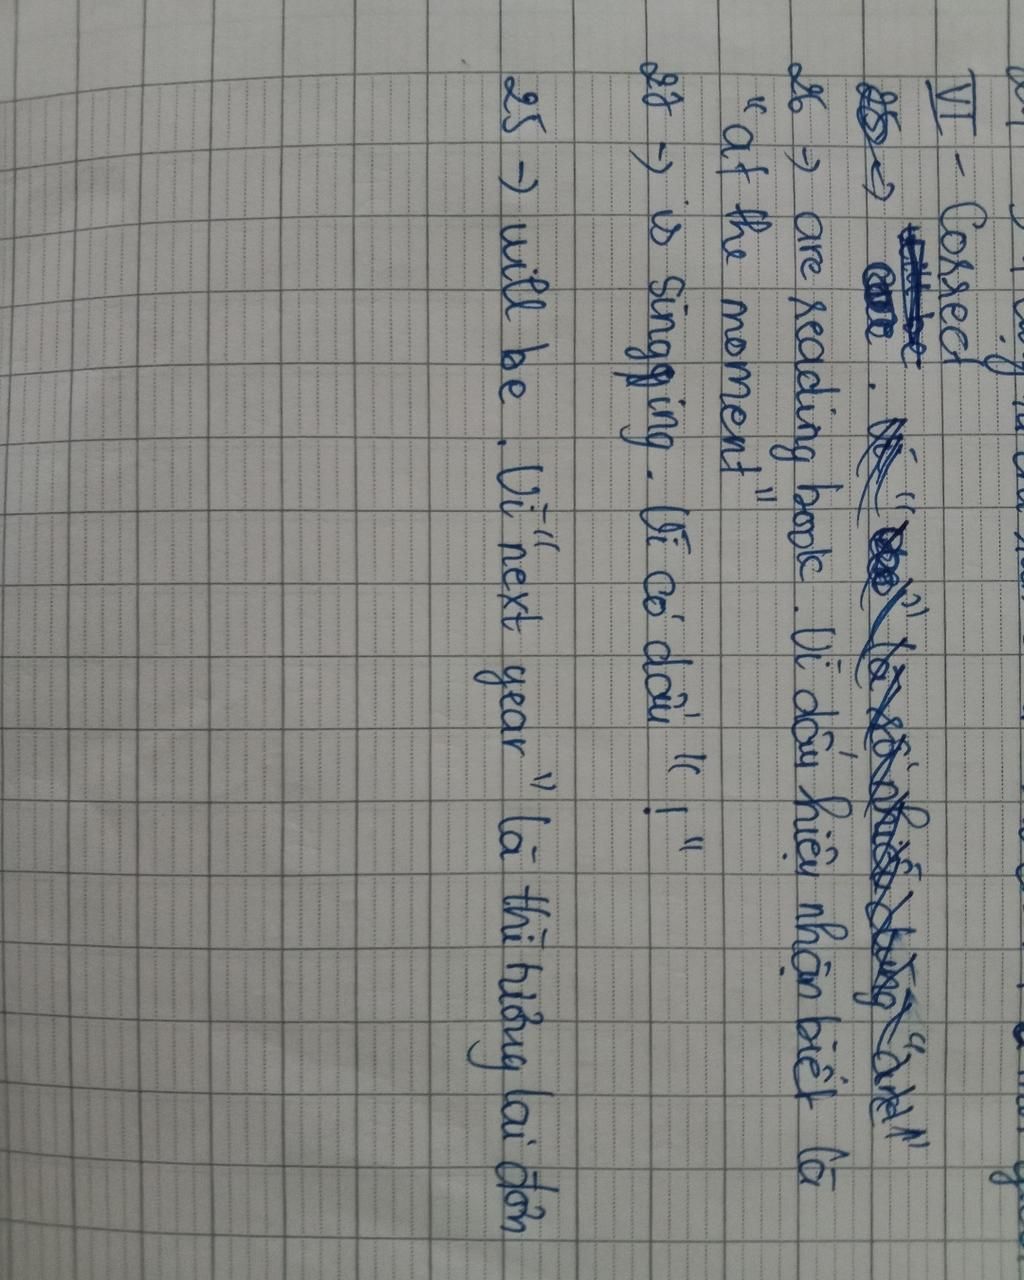 VI - Correct
26 → are reading book. Vì dấu hiệu nhận biết là
"at the moment"
27 → is singging. Vì có dấu "!"
25 → will be. Vì "next year" là thì tương lai đơn